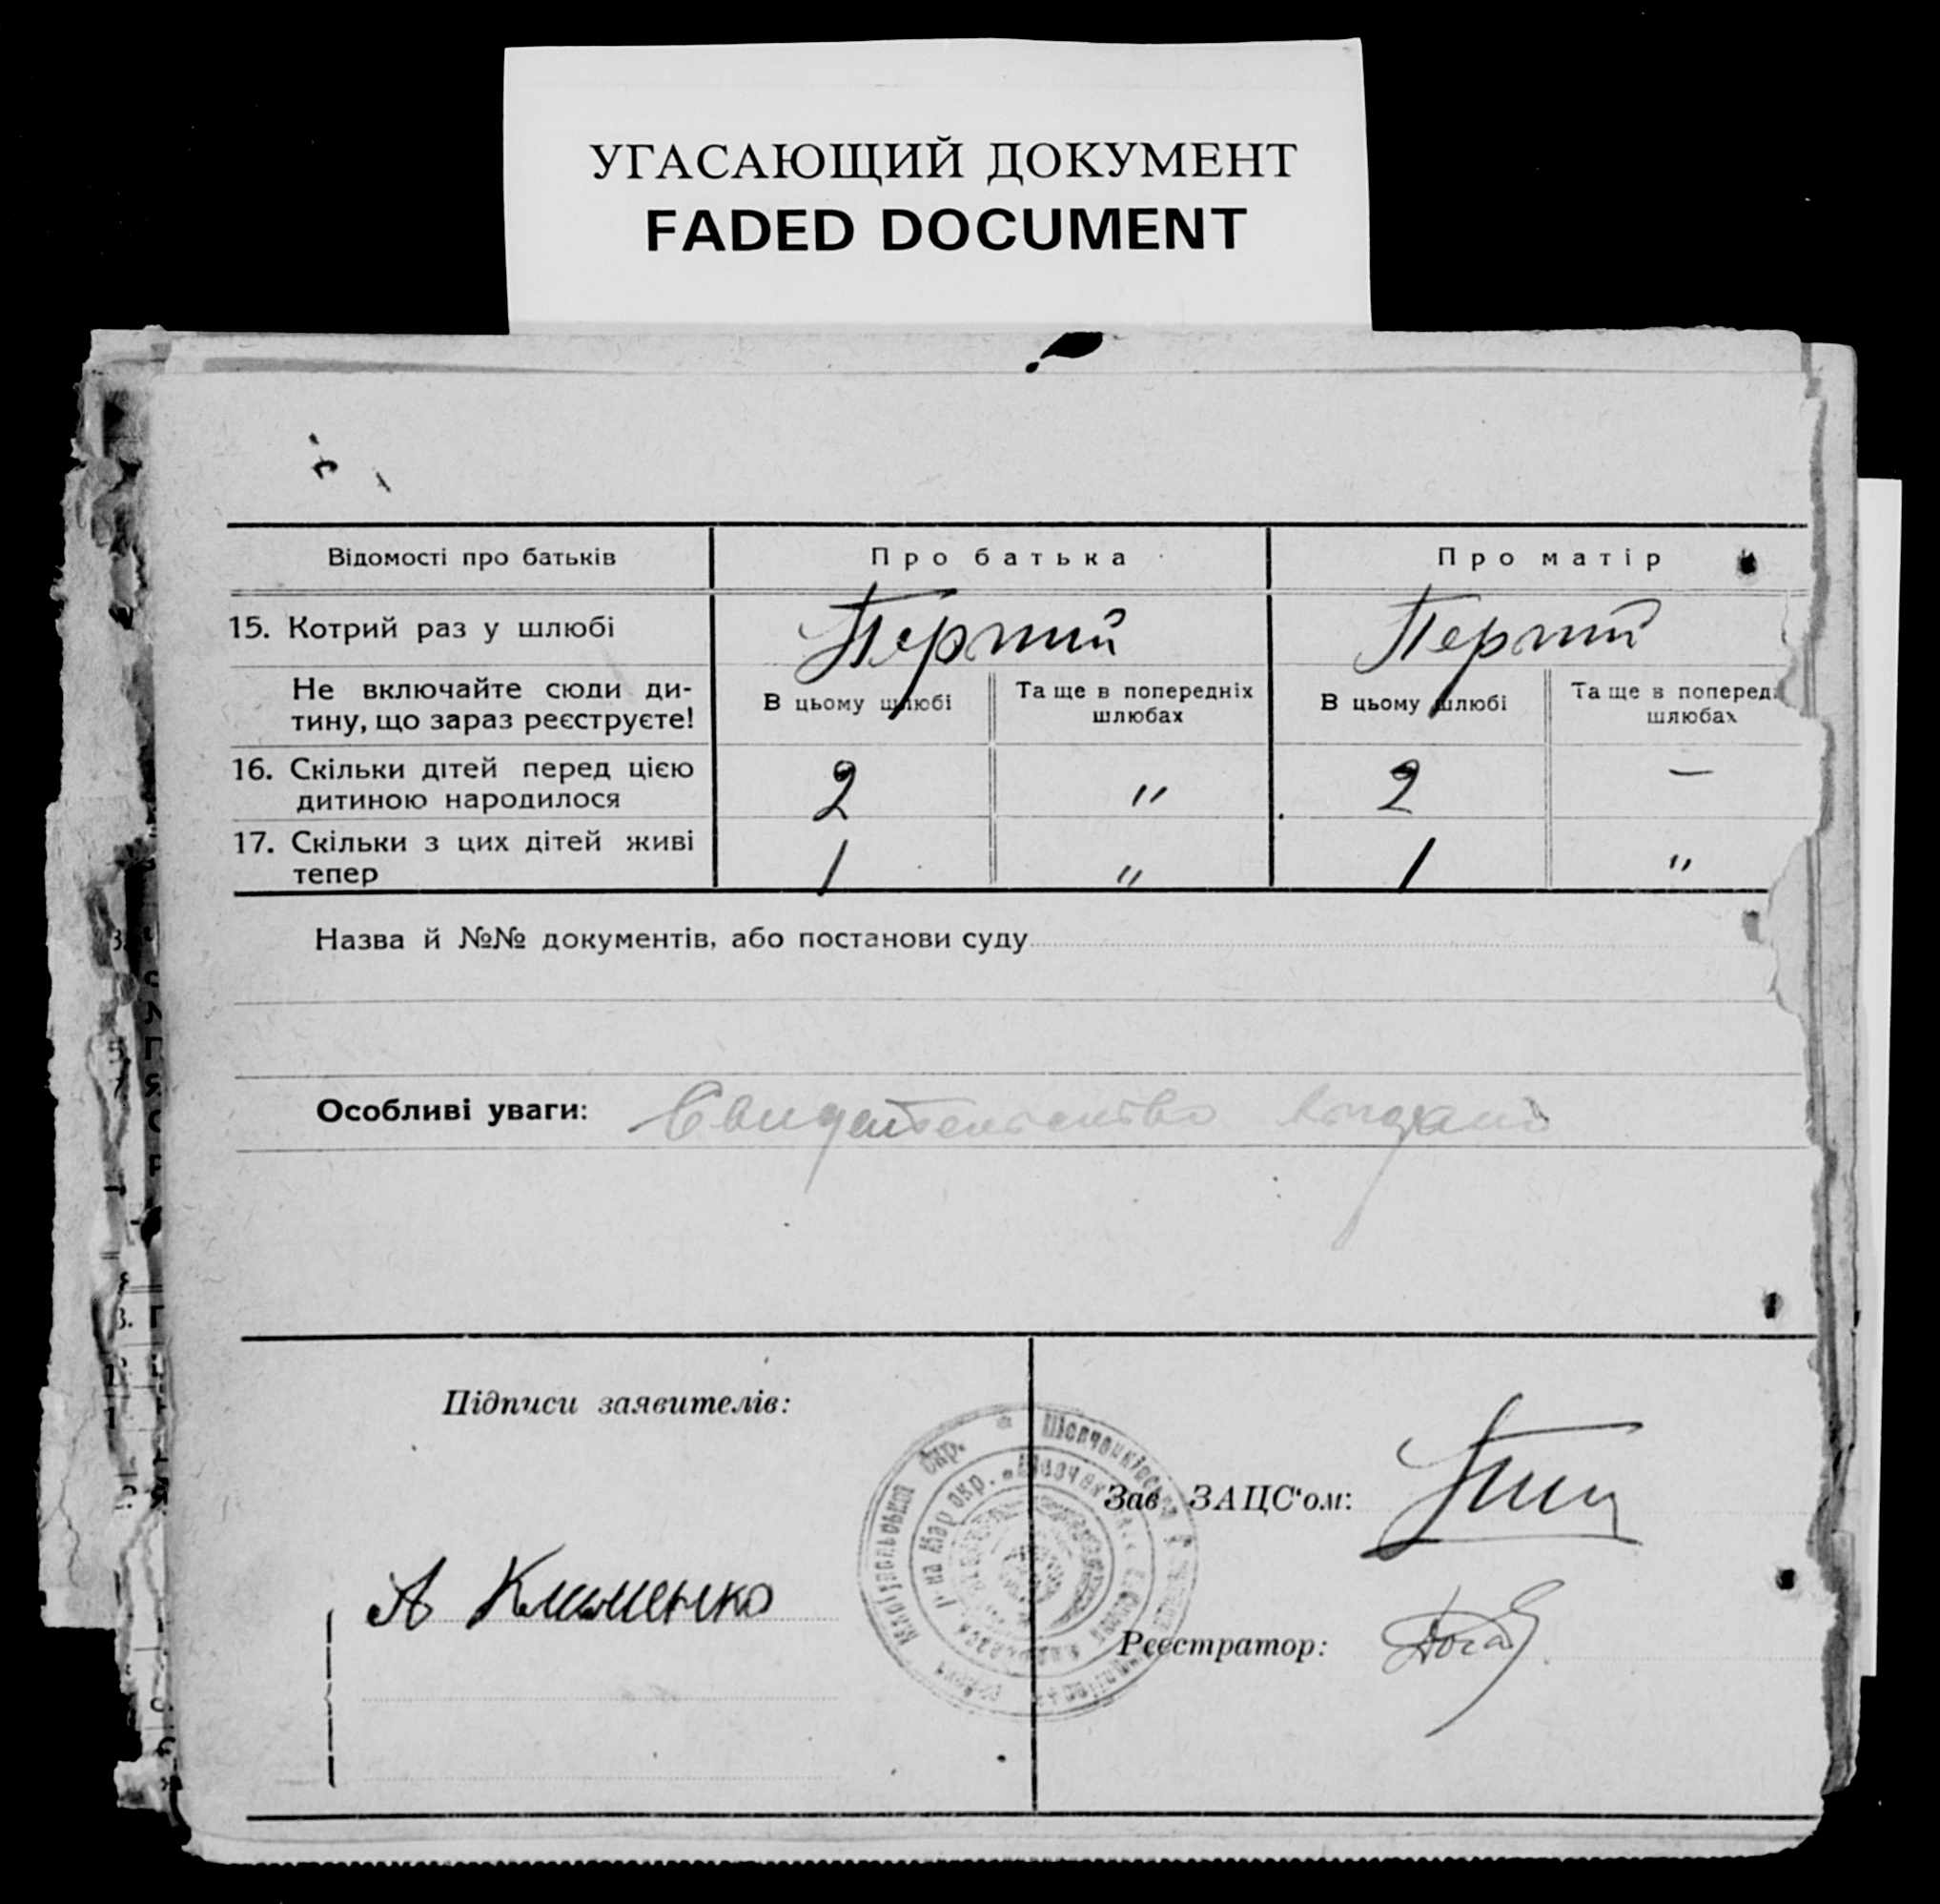 УГАСАЮЩИЙ ДОКУМЕНТ
FADED DOCUMENT
Відомості про батьків
Про батька
Про матір
15. Котрий раз у шлюбі
Перший
Перший
Не включайте сюди ди-
тину, що зараз реєструєте!
В цьому шлюбі
Та ще в попередніх
шлюбах
В цьому шлюбі
Та ще в поперед
шлюбах
16. Скільки дітей перед цією
дитиною народилося
2
"
2
—
17. Скільки з цих дітей живі
тепер
1
"
1
"
Назва й №№ документів, або постанови суду
Особливі уваги: Свидетельство выдано
Підписи заявителів:
А Клименко
Зав. ЗАЦС'ом:
Реєстратор:
Маріупольської Окр.